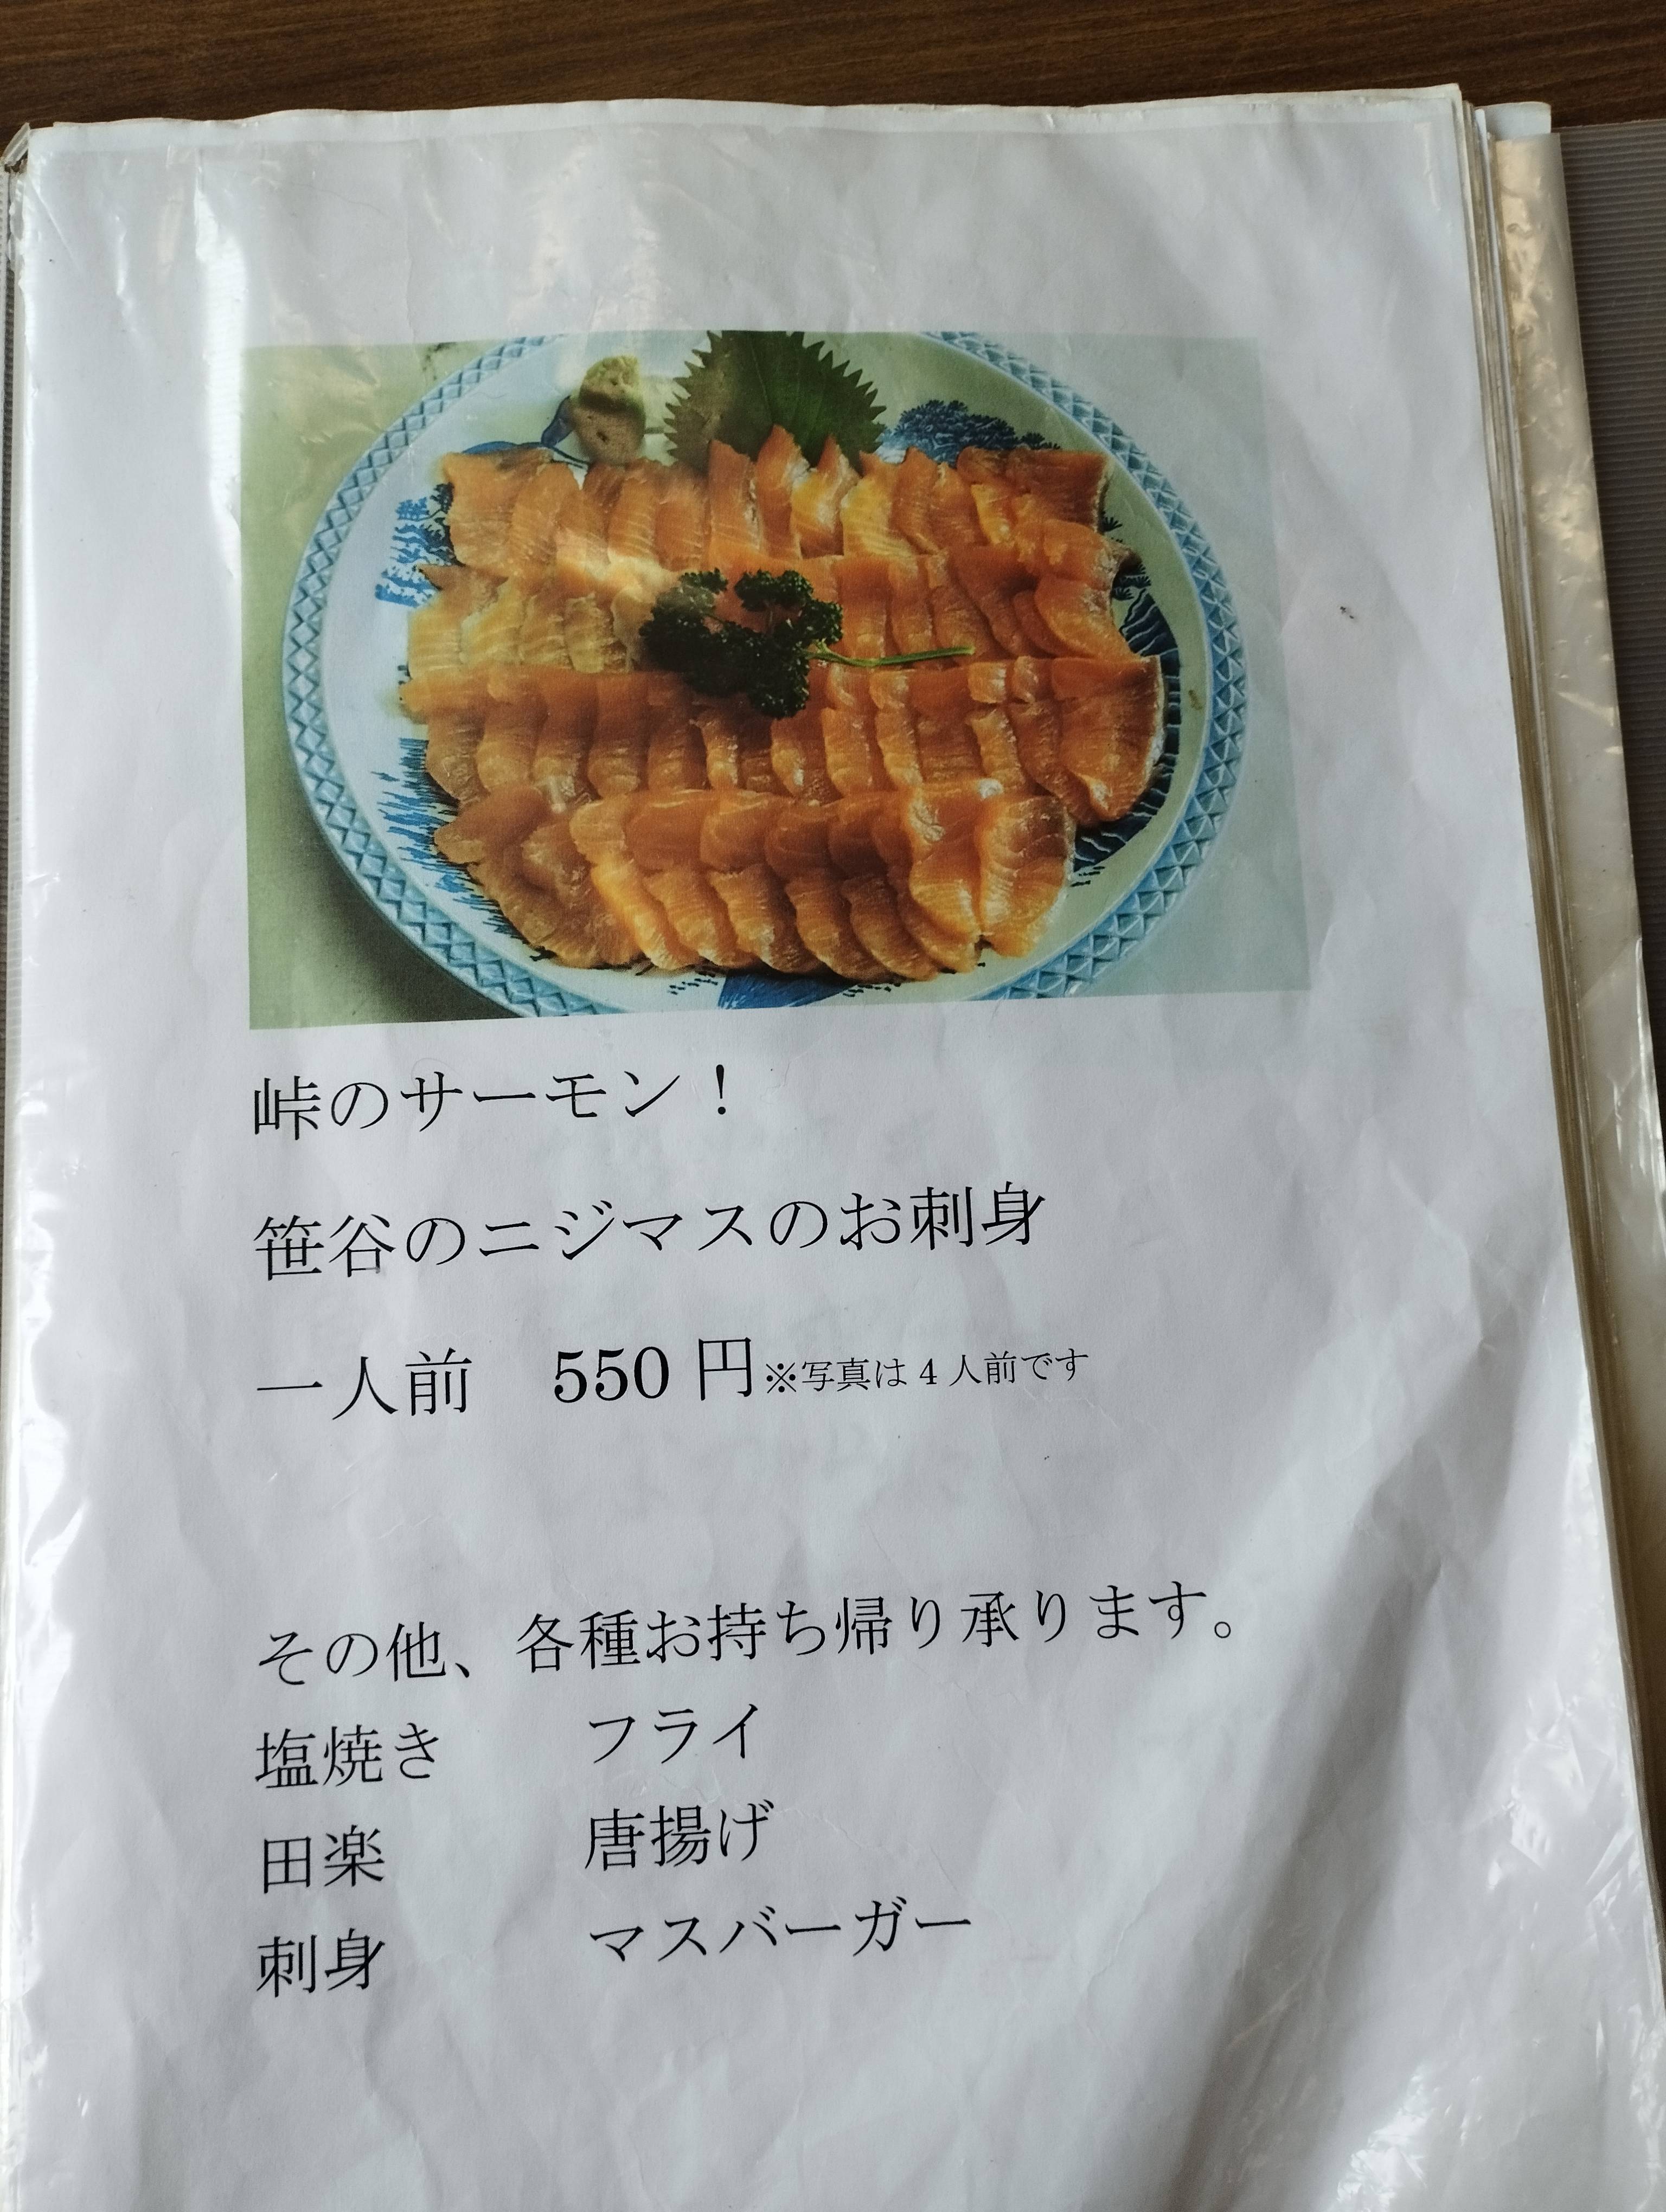 峠のサーモン！
笹谷のニジマスのお刺身
一人前　550 円※写真は 4 人前です
その他、各種お持ち帰り承ります。
塩焼き　フライ
田楽　唐揚げ
刺身　マスバーガー